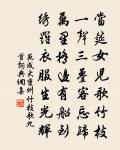 當筵女兒歌竹枝
一聲三疊客忘歸
萬里橋邊有船到
綉羅衣服生光輝
范成大夔州竹枝歌九
首詞典調集